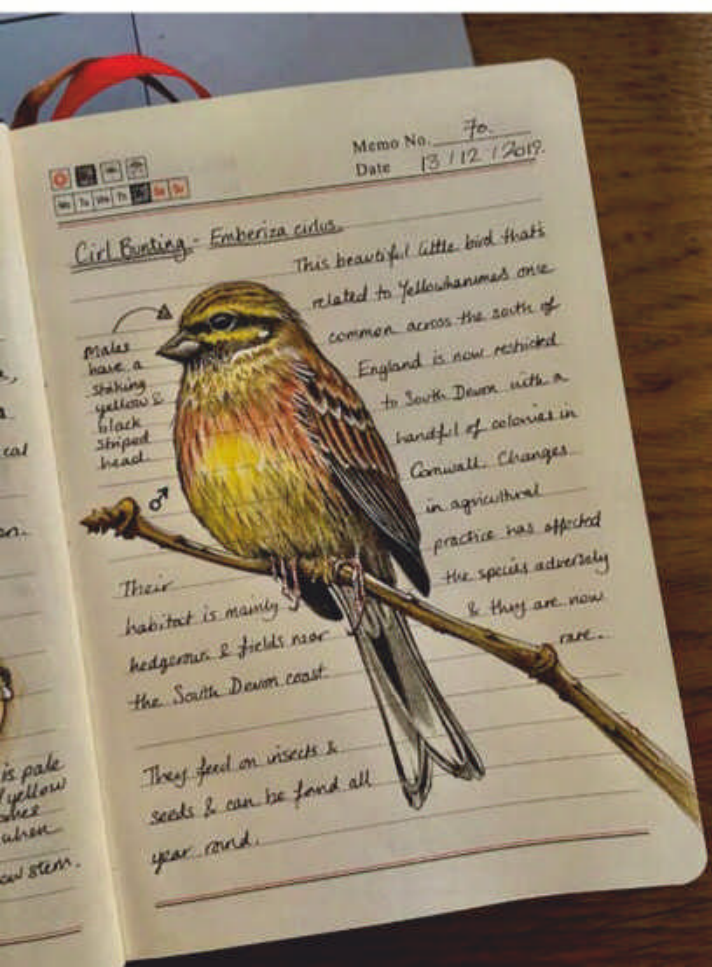 Memo No. 70.
Date 13 / 12 / 2019.
Mo Tu We Th Sa Su
Cirl Bunting - Emberiza cirlus.
This beautiful little bird that's
related to Yellowhammers once
common across the south of
England is now restricted
to South Devon with a
handful of colonies in
Cornwall. Changes
in agricultural
practice has affected
the species adversely
& they are now
rare.
Males
have a
striking
yellow &
black
striped
head
♂
Their
habitat is mainly
hedgerows & fields near
the South Devon coast
They feed on insects &
seeds & can be found all
year round.
is pale
yellow
when
stem.